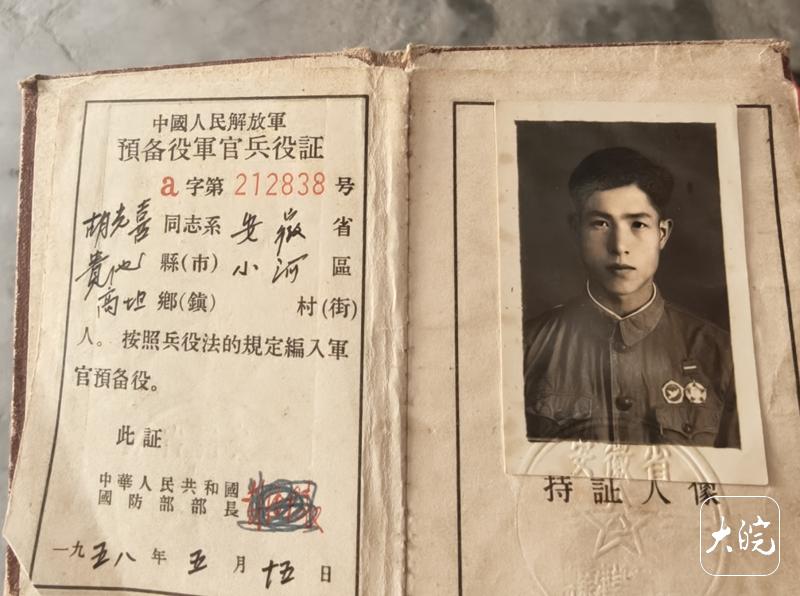 中國人民解放軍
預备役軍官兵役証
a字第 212838 号
胡先喜 同志系 安徽 省
貴池 縣(市) 小河 區
高坦 鄉(鎮) 村(街)
人。按照兵役法的規定編入軍
官預备役。
此証
中華人民共和國
國防部部長
一九五八年五月十五日
安徽省
持証人像
大皖